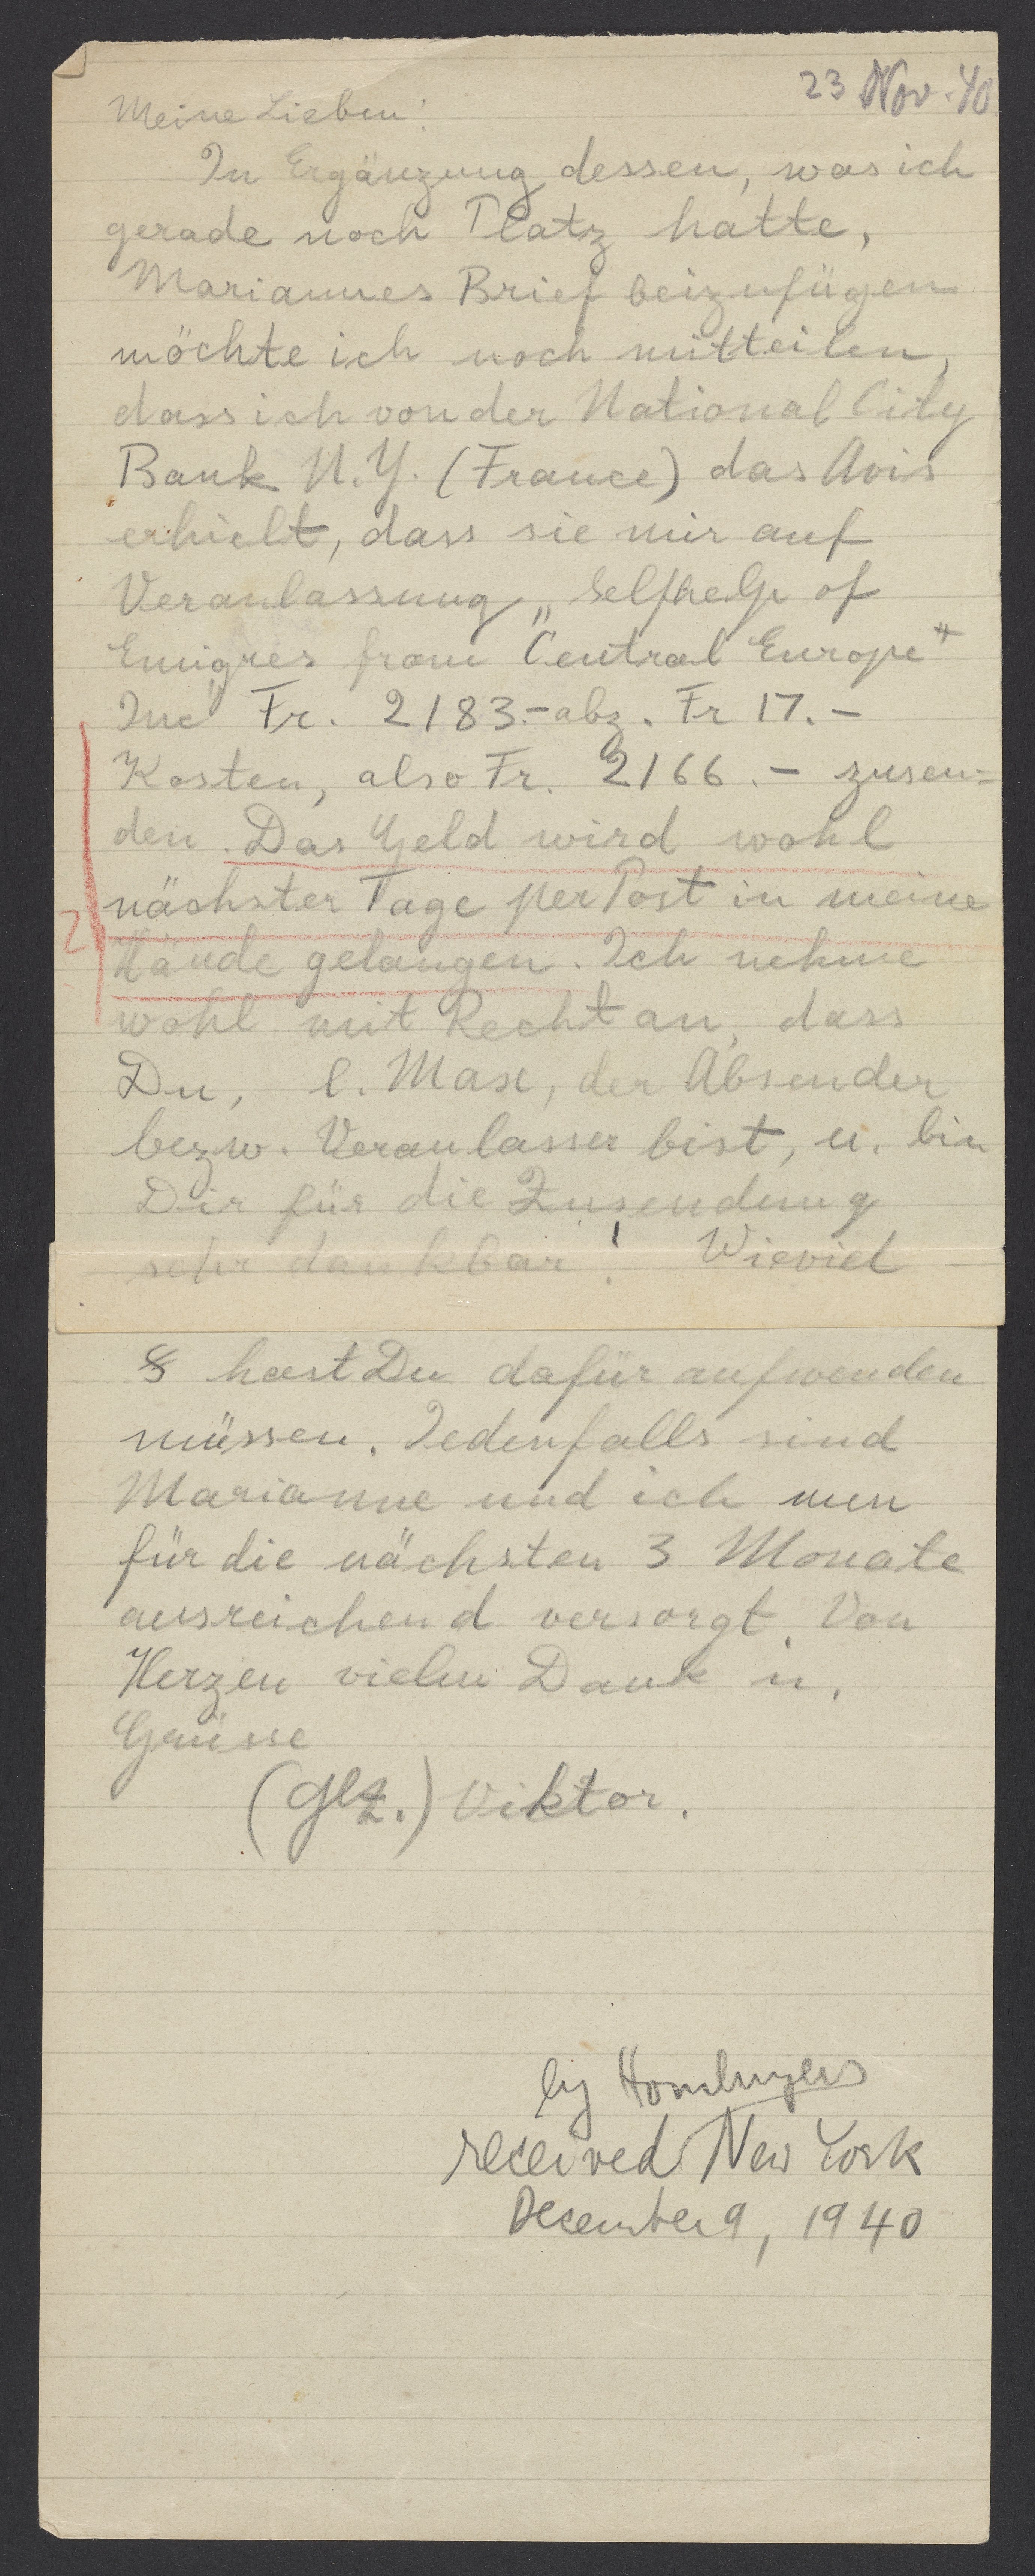 23 Nov. 40
Meine Lieben!
In Ergänzung dessen, was ich
gerade noch Platz hatte,
Mariannes Brief beizufügen
möchte ich noch mitteilen,
dass ich von der National City
Bank N.Y. (France) das Avis
erhielt, dass sie mir auf
Veranlassung „Selfhelp of
Emigres from Central Europe"
Inc" Fr. 2183.- abz. Fr 17.-
Kosten, also Fr. 2166.- zusen=
den. Das Geld wird wohl
nächster Tage per Post in meine
Hände gelangen. Ich nehme
wohl mit Recht an, dass
Du, l. Max, der Absender
bezw. Veranlasser bist, u. bin
Dir für die Zusendung
sehr dankbar! Wieviel
$ hast Du dafür aufwenden
müssen. Jedenfalls sind
Marianne und ich nun
für die nächsten 3 Monate
ausreichend versorgt. Von
Herzen vielen Dank u.
Grüsse
(gez.) Viktor.
by Homburgers
received New York
December 9, 1940